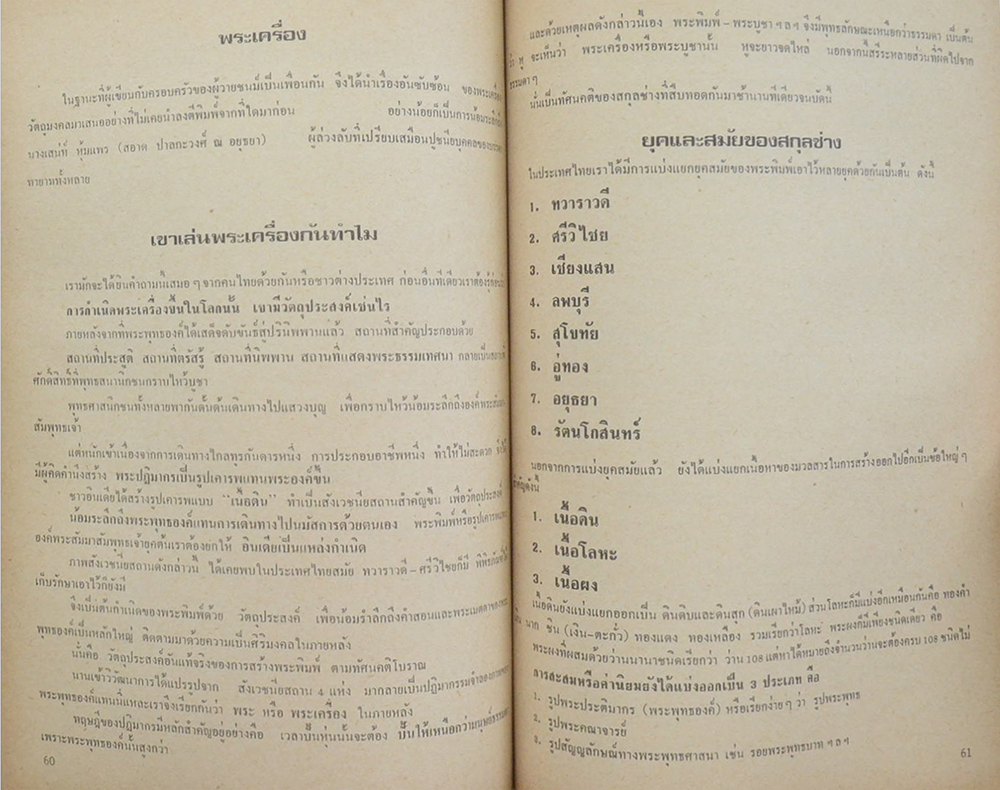 พระเครื่อง
ในฐานะที่ผู้เขียนกับครอบครัวของผู้วายชนม์เป็นเพื่อนกัน จึงได้นำเรื่องอันซับซ้อน ของพระเครื่อง
วัตถุมงคลมาเสนออย่างที่ไม่เคยนำลงตีพิมพ์จากที่ใดมาก่อน อย่างน้อยก็เป็นการน้อมระลึกถึง
นางเสน่ห์ หุ้มแพร (สอาด ปาลกะวงศ์ ณ อยุธยา) ผู้ล่วงลับที่เปรียบเสมือนปูชนียบุคคลของบรรดา
ทายาททั้งหลาย
เขาเล่นพระเครื่องกันทำไม
เรามักจะได้ยินคำถามนี้เสมอ ๆ จากคนไทยด้วยกันหรือชาวต่างประเทศ ก่อนอื่นทีเดียวเราต้องรู้ก่อนว่า
การกำเนิดพระเครื่องขึ้นในโลกนั้น เขามีวัตถุประสงค์เช่นไร
ภายหลังจากที่พระพุทธองค์ได้เสด็จดับขันธ์สู่ปรินิพพานแล้ว สถานที่สำคัญประกอบด้วย
สถานที่ประสูติ สถานที่ตรัสรู้ สถานที่นิพพาน สถานที่แสดงพระธรรมเทศนา กลายเป็นสถานที่
ศักดิ์สิทธิ์ที่พุทธสานิกชนกราบไหว้บูชา
พุทธศาสนิกชนทั้งหลายพากันดั้นด้นเดินทางไปแสวงบุญ เพื่อกราบไหว้น้อมระลึกถึงองค์พระสัมมา
สัมพุทธเจ้า
แต่หนักเข้าเนื่องจากการเดินทางไกลทุรกันดารหนึ่ง การประกอบอาชีพหนึ่ง ทำให้ไม่สะดวก จึงได้
มีผู้คิดคำนึงสร้าง พระปฏิมากรเป็นรูปเคารพแทนพระองค์ขึ้น
ชาวอินเดียได้สร้างรูปเคารพแบบ "เนื้อดิน" ทำเป็นสังเวชนียสถานสำคัญขึ้น เพื่อวัตถุประสงค์
น้อมระลึกถึงพระพุทธองค์แทนการเดินทางไปนมัสการด้วยตนเอง พระพิมพ์หรือรูปเคารพแทน
องค์พระสัมมาสัมพุทธเจ้ายุคต้นเราต้องยกให้ อินเดียเป็นแหล่งกำเนิด
ภาพสังเวชนียสถานดังกล่าวนี้ ได้เคยพบในประเทศไทยสมัย ทวาราวดี–ศรีวิไชยก็มี พิพิธภัณฑ์ได้
เก็บรักษาเอาไว้ก็ยังมี
จึงเป็นต้นกำเนิดของพระพิมพ์ด้วย วัตถุประสงค์ เพื่อน้อมรำลึกถึงคำสอนและพระเมตตาของพระ
พุทธองค์เป็นหลักใหญ่ ติดตามมาด้วยความเป็นศิริมงคลในภายหลัง
นั่นคือ วัตถุประสงค์อันแท้จริงของการสร้างพระพิมพ์ ตามทัศนคติโบราณ
นานเข้าวิวัฒนาการได้แปรรูปจาก สังเวชนียสถาน 4 แห่ง มากลายเป็นปฏิมากรรมจำลอง
พระพุทธองค์แทนนี่แหละเราจึงเรียกกันว่า พระ หรือ พระเครื่อง ในภายหลัง
ทฤษฎีของปฏิมากรมีหลักสำคัญอยู่อย่างคือ เวลาปั้นหุ่นนั้นจะต้อง ปั้นให้เหนือกว่ามนุษย์ธรรมดา
เพราะพระพุทธองค์นั้นสูงกว่า
60
และด้วยเหตุผลดังกล่าวนี้เอง พระพิมพ์–พระบูชา ฯ ล ฯ จึงมีพุทธลักษณะเหนือกว่าธรรมดา เป็นต้น
ว่า หู จะเห็นว่า พระเครื่องหรือพระบูชานั้น หูจะยาวจดไหล่ นอกจากนี้สรีระหลายส่วนก็ผิดไปจาก
ธรรมดา ๆ
นั่นเป็นทัศนคติของสกุลช่างที่สืบทอดกันมาช้านานทีเดียวจนบัดนี้
ยุคและสมัยของสกุลช่าง
ในประเทศไทยเราได้มีการแบ่งแยกยุคสมัยของพระพิมพ์เอาไว้หลายยุคด้วยกันเป็นต้น ดังนี้
1. ทวาราวดี
2. ศรีวิไชย
3. เชียงแสน
4. ลพบุรี
5. สุโขทัย
6. อู่ทอง
7. อยุธยา
8. รัตนโกสินทร์
นอกจากการแบ่งยุคสมัยแล้ว ยังได้แบ่งแยกเนื้อหาของมวลสารในการสร้างออกไปอีกเป็นข้อใหญ่ ๆ
สำคัญดังนี้
1. เนื้อดิน
2. เนื้อโลหะ
3. เนื้อผง
เนื้อดินยังแบ่งแยกออกเป็น ดินดิบและดินสุก (ดินเผาไหม้) ส่วนโลหะก็มีแบ่งอีกเหมือนกันคือ ทองคำ
เงิน นาก ชิน (เงิน–ตะกั่ว) ทองแดง ทองเหลือง รวมเรียกว่าโลหะ พระผงก็มีเพียงชนิดเดียว คือ
พระผงที่ผสมด้วยว่านนานาชนิดเรียกว่า ว่าน 108 แต่หาได้หมายถึงจำนวนว่านจะต้องครบ 108 ชนิดไม่
การสะสมหรือค่านิยมยังได้แบ่งออกเป็น 3 ประเภท คือ
1. รูปพระประติมากร (พระพุทธองค์) หรือเรียกง่าย ๆ ว่า รูปพระพุทธ
2. รูปพระคณาจารย์
3. รูปสัญญลักษณ์ทางพระพุทธศาสนา เช่น รอยพระพุทธบาท ฯ ล ฯ
61